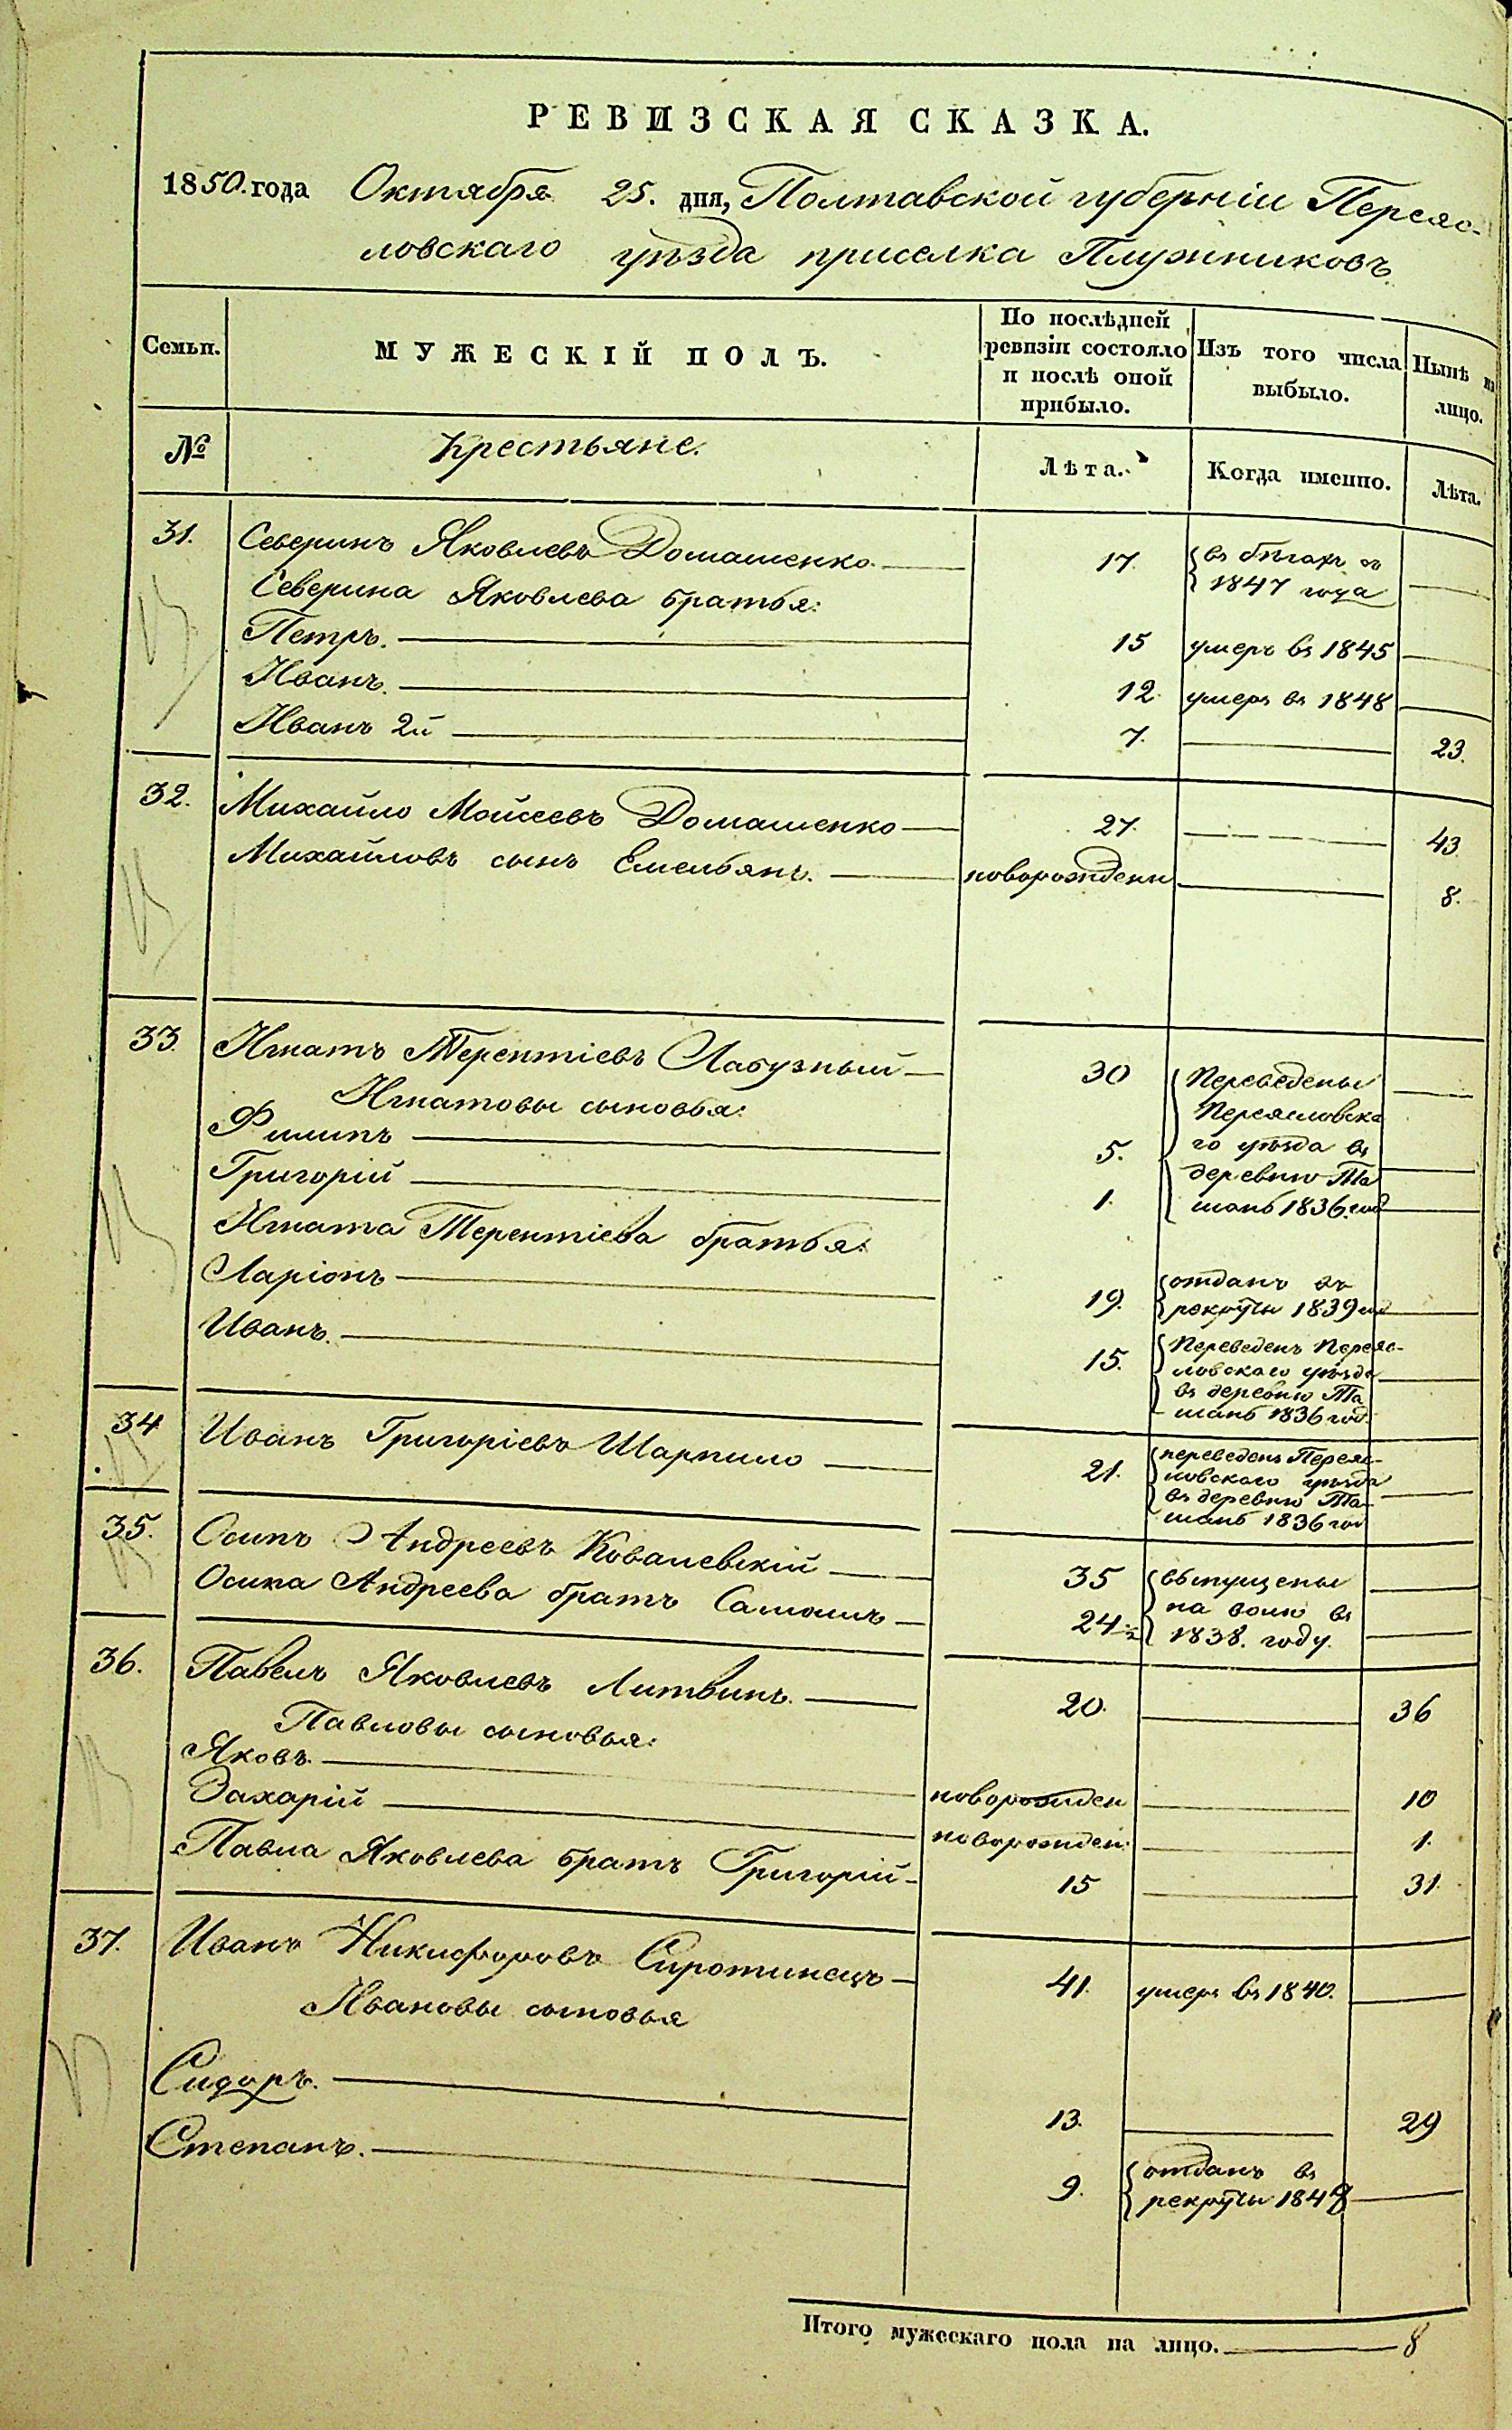 РЕВИЗСКАЯ СКАЗКА.
1850. года Октября 25. дня, Полтавской губерніи Переяс-
ловскаго уѣзда приселка Плужниковъ
Семьи. МУЖЕСКІЙ ПОЛЪ. По послѣдней ревизіи состояло и послѣ оной прибыло. Изъ того числа выбыло. Нынѣ на лицо.
№ Крестьяне. Лѣта. Когда именно. Лѣта.
31. Северинъ Яковлевъ Домашенко 17. въ бѣгахъ съ
1847 года
Северина Яковлева братья:
Петръ. 15 умеръ въ 1845
Иванъ. 12 умеръ въ 1848
Иванъ 2й 7. 23.
32. Михайло Мойсеевъ Домашенко 27. 43
Михайловъ сынъ Емельянъ. новорожденн 8.
33. Игнатъ Терентіевъ Лабузный 30 Переведены
Игнатовы сыновья: Переясловска
Филипъ 5. го уѣзда въ
Григорій 1. деревню Та
шань 1836. год
Игната Терентіева братья:
Ларіонъ 19. отданъ въ
рекруты 1839 год
Иванъ. 15. Переведенъ Переяс-
ловскаго уѣзда
въ деревню Та
шань 1836 год.
34 Иванъ Григоріевъ Шарпило 21. переведенъ Переяс-
ловскаго уѣзда
въ деревню Та-
шань 1836 год
35. Осипъ Андреевъ Ковалевскій 35 выпущены
Осипа Андреева братъ Самоилъ 24 ½ на волю въ
1838. году.
36. Павелъ Яковлевъ Литвинъ. 20. 36
Павловы сыновья:
Яковъ. новорожден 10
Захарій новорожден: 1.
Павла Яковлева братъ Григорій 15 31.
37. Иванъ Никифоровъ Сиротинецъ 41. умеръ въ 1840.
Ивановы сыновья
Сидоръ. 13. 29
Степанъ. 9. отданъ въ
рекруты
Итого мужескаго пола на лицо. 8